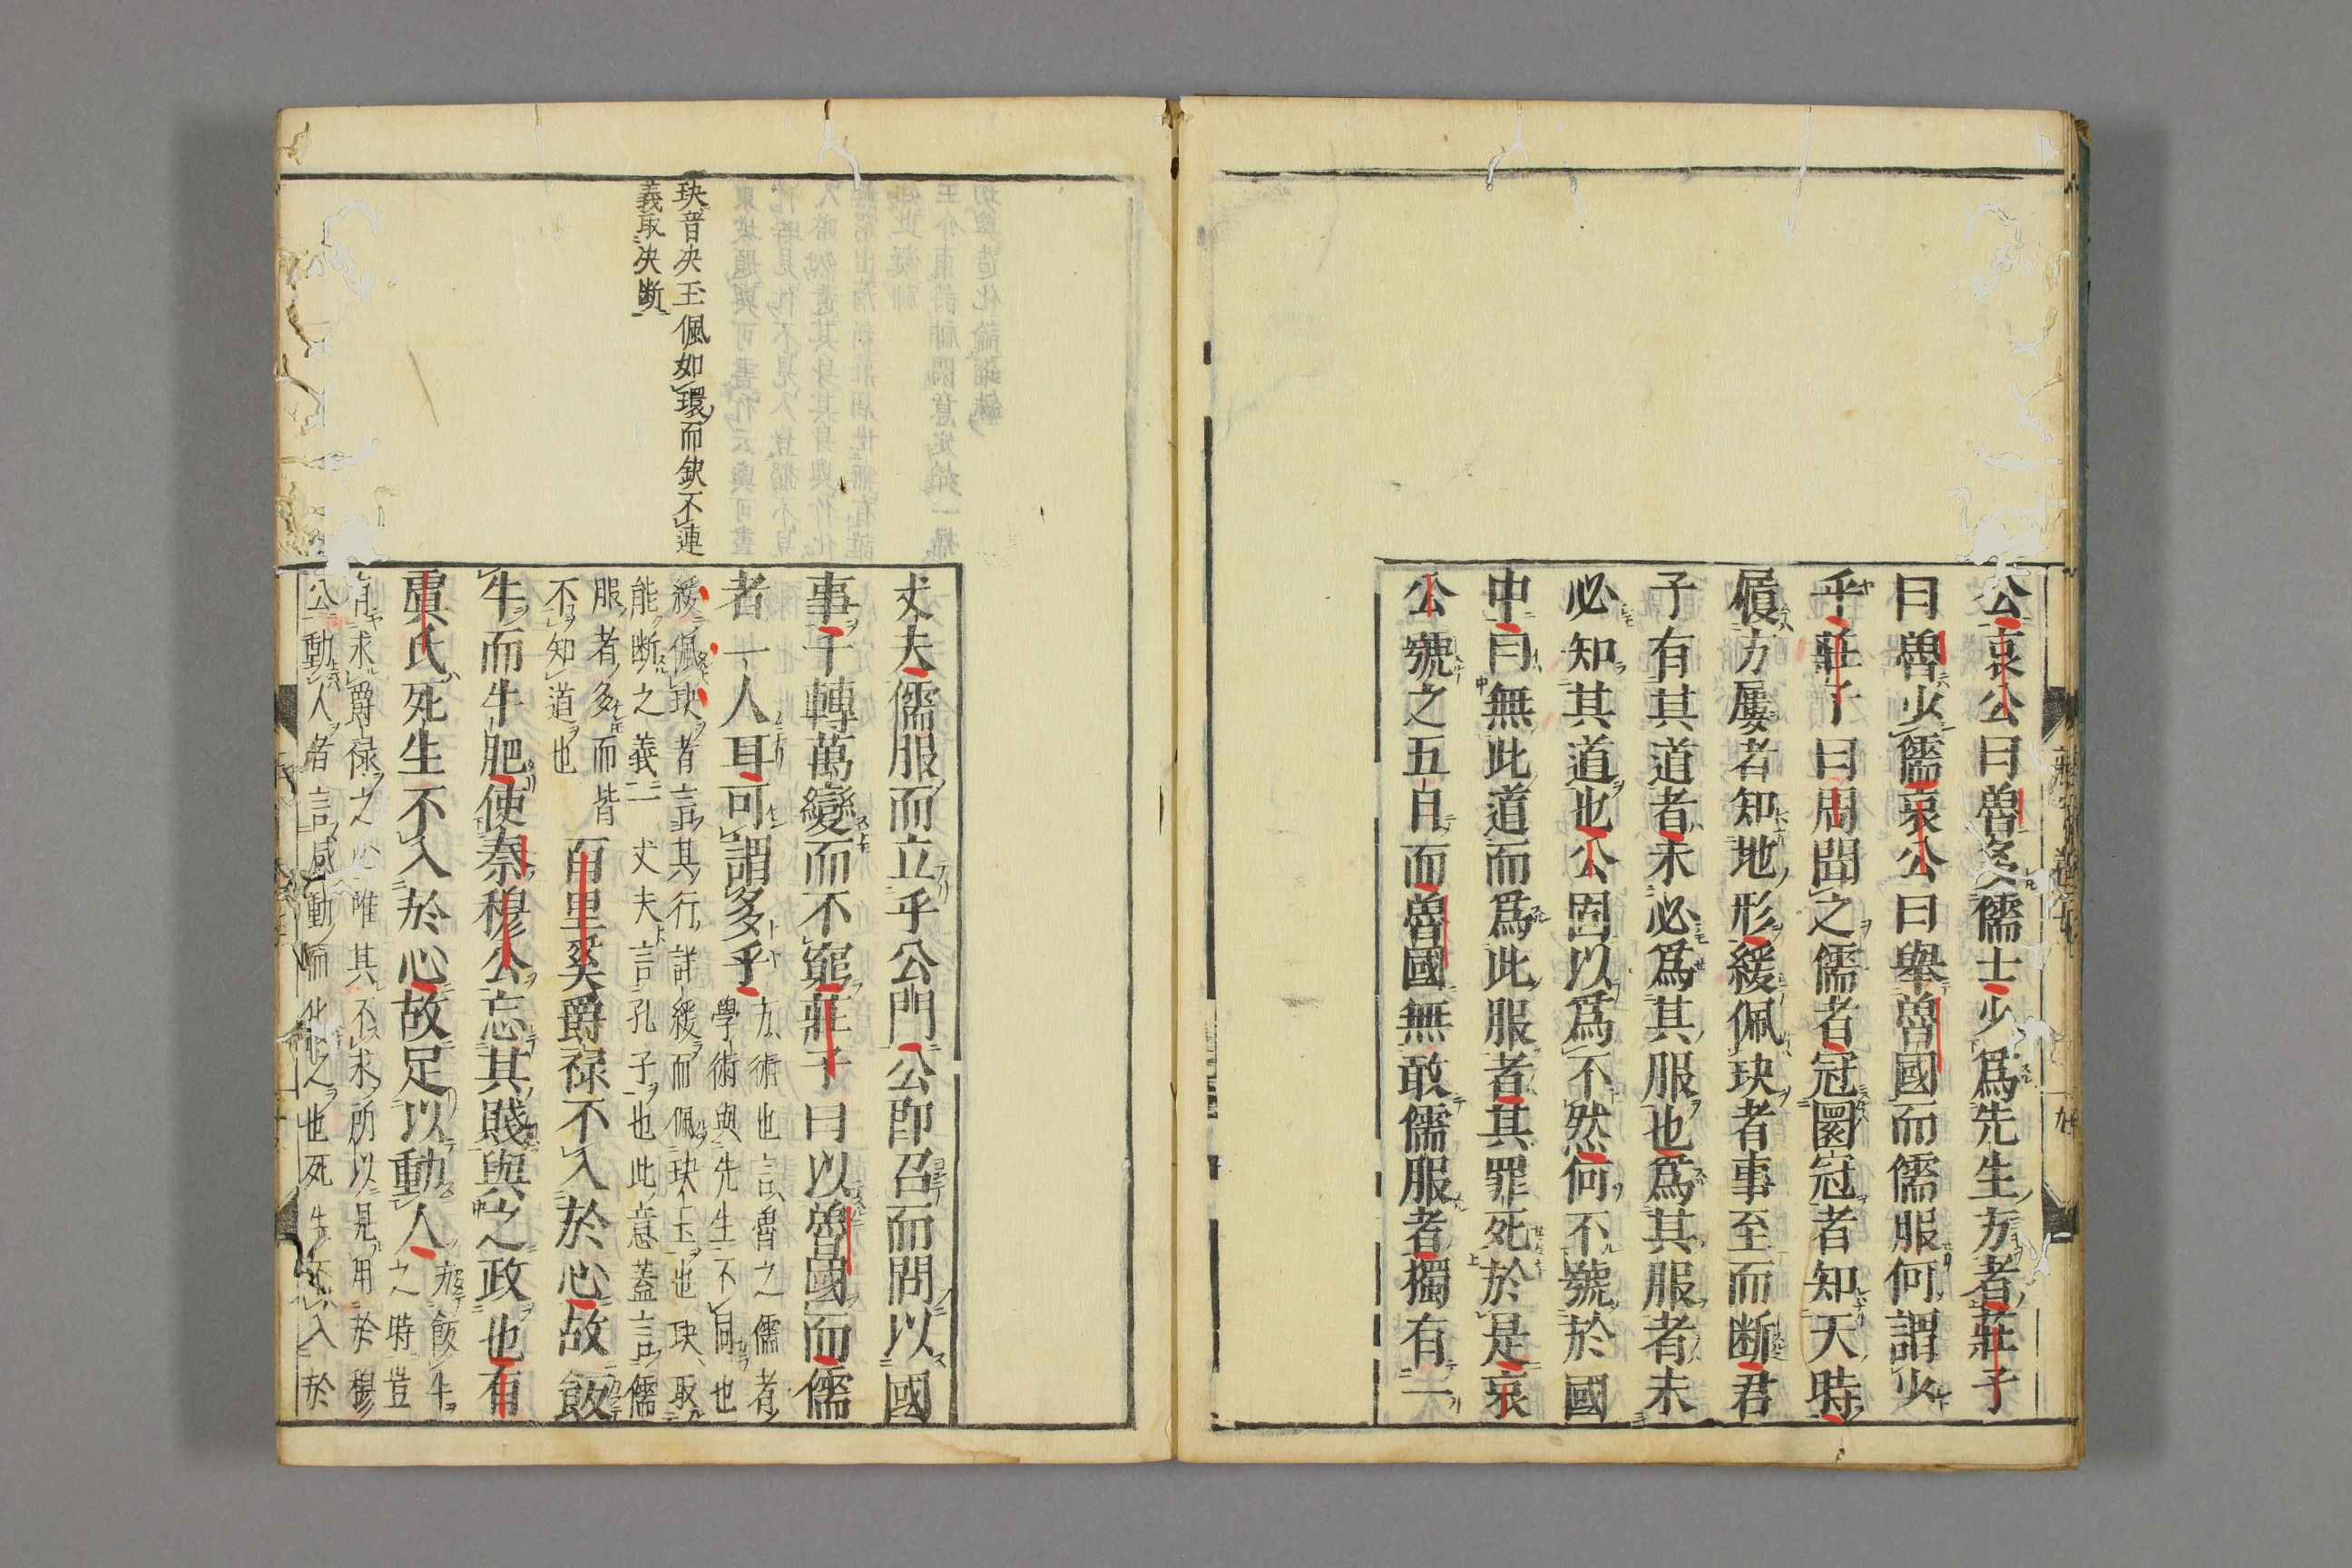 公哀公曰魯多儒士少爲先生方者莊子
曰魯少儒哀公曰舉魯國而儒服何謂少
乎莊子曰周聞之儒者冠圜冠者知天時
履方屨者知地形緩佩玦者事至而断君
子有其道者未必爲其服也爲其服者未
必知其道也公固以爲不然何不號於國
中曰無此道而爲此服者其罪死於是哀
公號之五日而魯國無敢儒服者獨有一
玦音决玉佩如環而缺不連
義取决断
丈夫儒服而立乎公門公即召而問以國
事千轉萬變而不窮莊子曰以魯國而儒
者一人耳可謂多乎
方術也言魯之儒者
學術與先生不同也
緩佩玦者言其行詳緩而佩玦玉也玦取
能断之義一丈夫言孔子也此意蓋言儒
服者多而皆
不知道也
百里奚爵禄不入於心故飯
牛而牛肥使秦穆公忘其賤與之政也有
虞氏死生不入於心故足以動人
方飯牛
之時豈
有求爵禄之心唯其不求所以見用於穆
公動人者言感動而化之也死生不入於